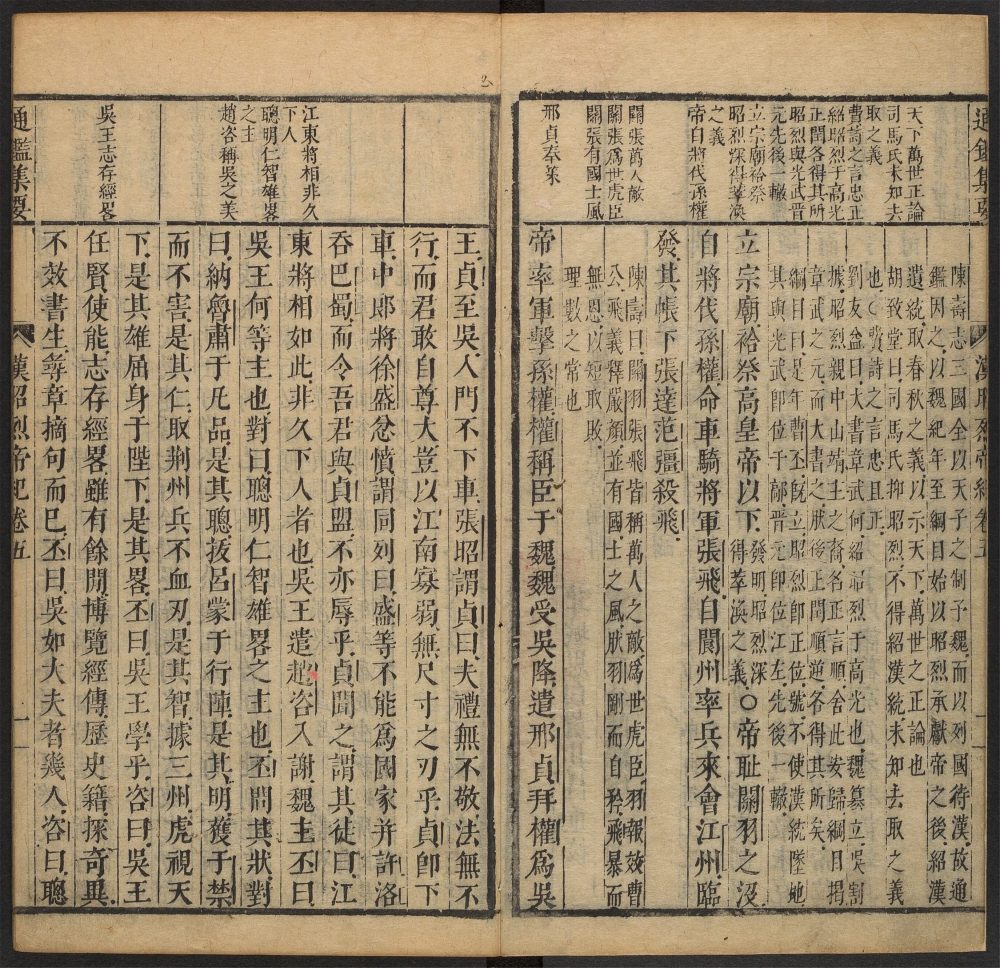 通鑑集要
漢昭烈帝紀卷五
天下萬世正論
司馬氏未知去
取之義
費詩之言忠正
紹昭烈于高光
正閏各得其所
昭烈與光武晋
元先後一轍
立宗廟祫祭
昭烈深得萃渙
之義
帝自將伐孫權
關張萬人敵
關張爲世虎臣
關張有國士風
邢貞奉策
陳壽志三國全以天子之制予魏而以列國待漢故通
鑑因之以魏紀年至綱目始以昭烈承獻帝之後紹漢
遺統取春秋之義以示天下萬世之正論也
胡致堂曰司馬氏抑昭烈不得紹漢統未知去取之義
也○費詩之言忠且正
劉友益曰大書章武何紹昭烈于高光也魏篡立吳割
據昭烈親中山靖王之裔名正言順舍此安歸綱目揭
章武之元而大書之肰後正閏順逆各得其所矣
綱目曰是年曹丕旣立昭烈卽正位號不使漢統墜地
其與光武卽位于鄗晋元卽位江左先後一轍
立宗廟祫祭高皇帝以下發明昭烈深
得萃渙之義○帝耻關羽之沒
自將伐孫權命車騎將軍張飛自閬州率兵來會江州臨
發其帳下張達范彊殺飛
陳壽曰關羽張飛皆稱萬人之敵爲世虎臣羽報效曹
公飛義釋嚴顏並有國士之風肰羽剛而自矜飛暴而
無恩以短取敗
理數之常也
帝率軍擊孫權權稱臣于魏魏受吳降遣邢貞拜權爲吳
江東將相非久
下人
聰明仁智雄畧
之主
趙咨稱吳之美
吳王志存經畧
王貞至吳入門不下車張昭謂貞曰夫禮無不敬法無不
行而君敢自尊大豈以江南寡弱無尺寸之刃乎貞卽下
車中郎將徐盛忿憤謂同列曰盛等不能爲國家并許洛
吞巴蜀而令吾君與貞盟不亦辱乎貞聞之謂其徒曰江
東將相如此非久下人者也吳王遣趙咨入謝魏主丕曰
吳王何等主也對曰聰明仁智雄畧之主也丕問其狀對
曰納魯肅于凡品是其聰拔呂蒙于行陣是其明獲于禁
而不害是其仁取荆州兵不血刃是其智據三州虎視天
下是其雄屈身于陛下是其畧丕曰吳王學乎咨曰吳王
任賢使能志存經畧雖有餘閒博覽經傳歷史籍採奇異
不效書生尋章摘句而已丕曰吳如大夫者幾人咨曰聰
通鑑集要
漢昭烈帝紀卷五